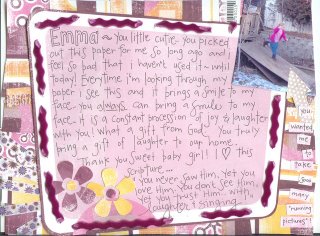 Emma ~ you little cutie - you picked
out this paper for me so long ago and I
feel so bad that i haven't used it - until
today! Everytime i'm looking through my
paper i see this and it brings a smile to my
face - you always can bring a smile to my
face - it is a constant procession of joy & laughter
with you! What a gift from God - You truly
bring a gift of laughter to our home.
Thank you Sweet baby girl! I ♡ this
scripture...
you never saw Him, yet you
love Him. You don't see Him,
yet you trust him. with
laughter & singing
you
wanted
me
to
take
many
"running
pictures"!